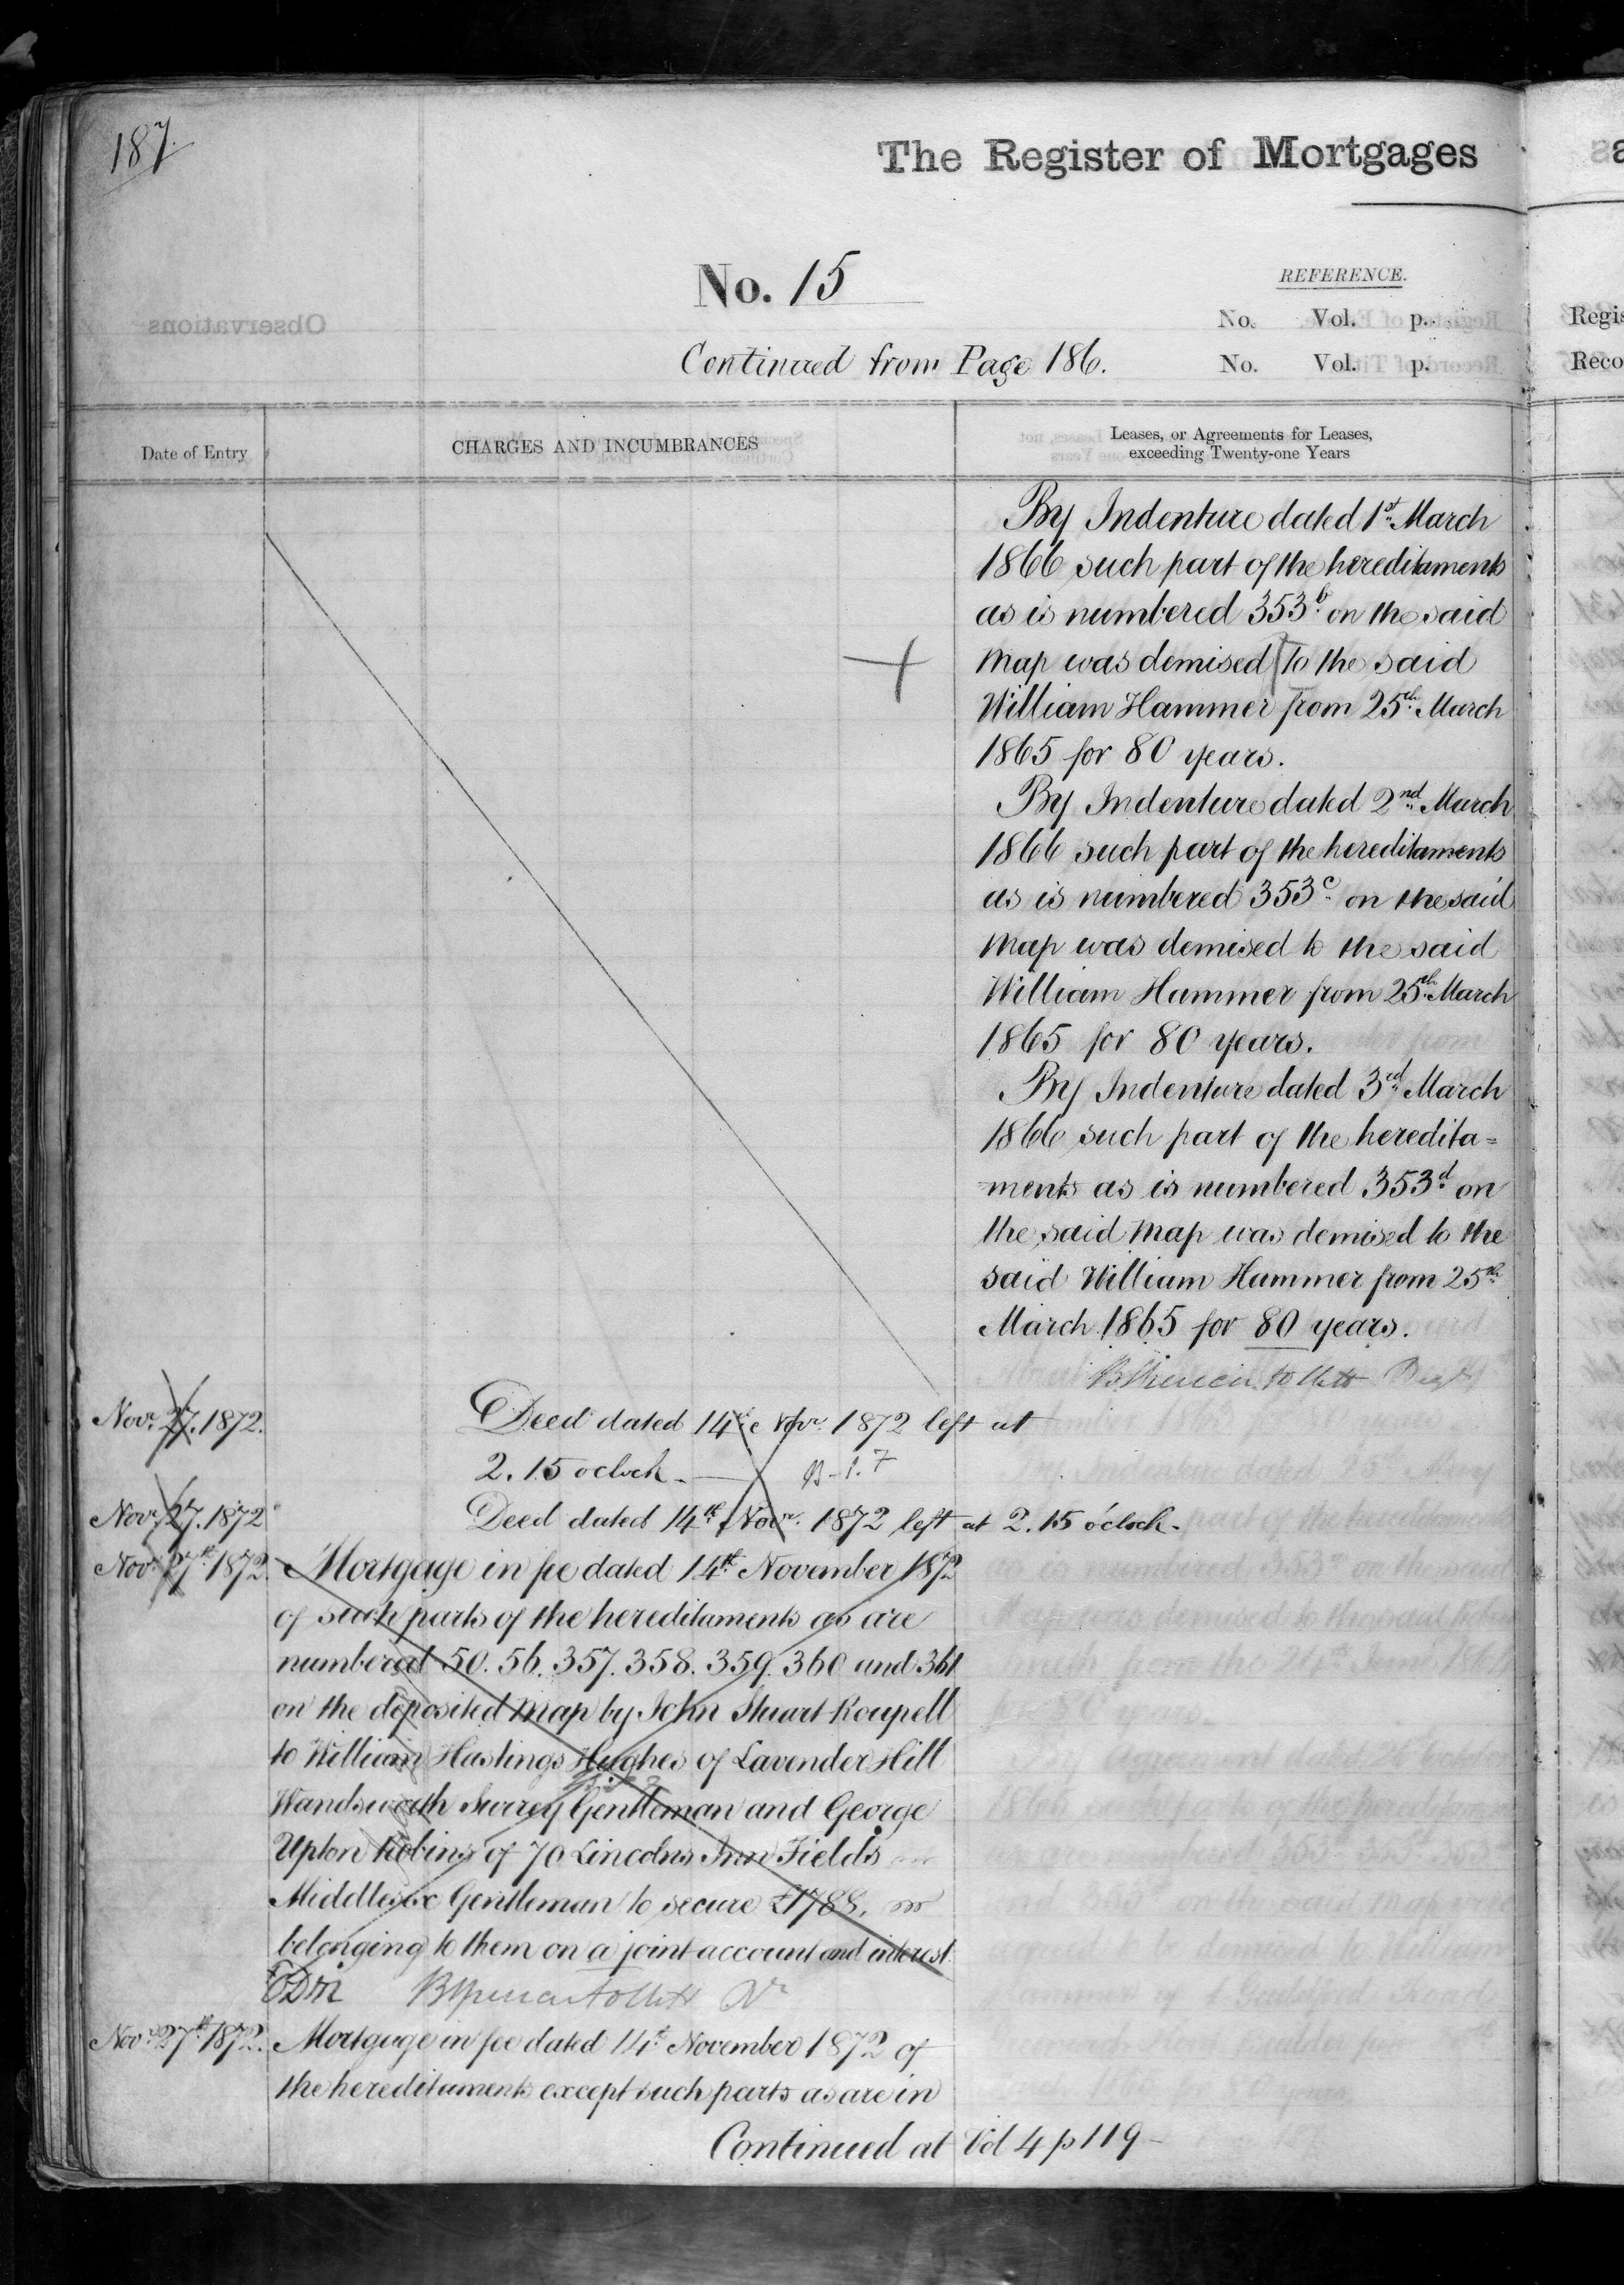 187.
The Register of Mortgages
No. 15
REFERENCE.
No. Vol. p.
Continued from Page 186.
No. Vol. p.
Regis
Reco
Date of Entry
CHARGES AND INCUMBRANCES
Leases, or Agreements for Leases,
exceeding Twenty-one Years
By Indenture dated 1st March
1866 such part of the hereditaments
as is numbered 353b on the said
Map was demised to the said
William Hammer from 25th March
1865 for 80 years.
By Indenture dated 2nd March
1866 such part of the hereditaments
as is numbered 353c on the said
Map was demised to the said
William Hammer from 25th March
1865 for 80 years.
By Indenture dated 3rd March
1866 such part of the heredita=
ments as is numbered 353d on
the said Map was demised to the
said William Hammer from 25th
March 1865 for 80 years.
Nov. 27. 1872. Deed dated 14th Novr. 1872 left at
2.15 o'clock.
Nov. 27. 1872 Deed dated 14th Novr. 1872 left at 2.15 o'clock.
Nov. 27th 1872. Mortgage in fee dated 14th November 1872
of such parts of the hereditaments as are
numbered 50. 56. 357. 358. 359. 360 and 361
on the deposited Map by John Stuart Roupell
to William Hastings Hughes of Lavender Hill
Wandsworth Surrey Gentleman and George
Upton Robins of 70 Lincolns Inn Fields
Middlesex Gentleman to secure £1788,
belonging to them on a joint account and interest.
Nov. 27th 1872. Mortgage in fee dated 14th November 1872 of
the hereditaments except such parts as are in
Continued at Vol 4 p 119